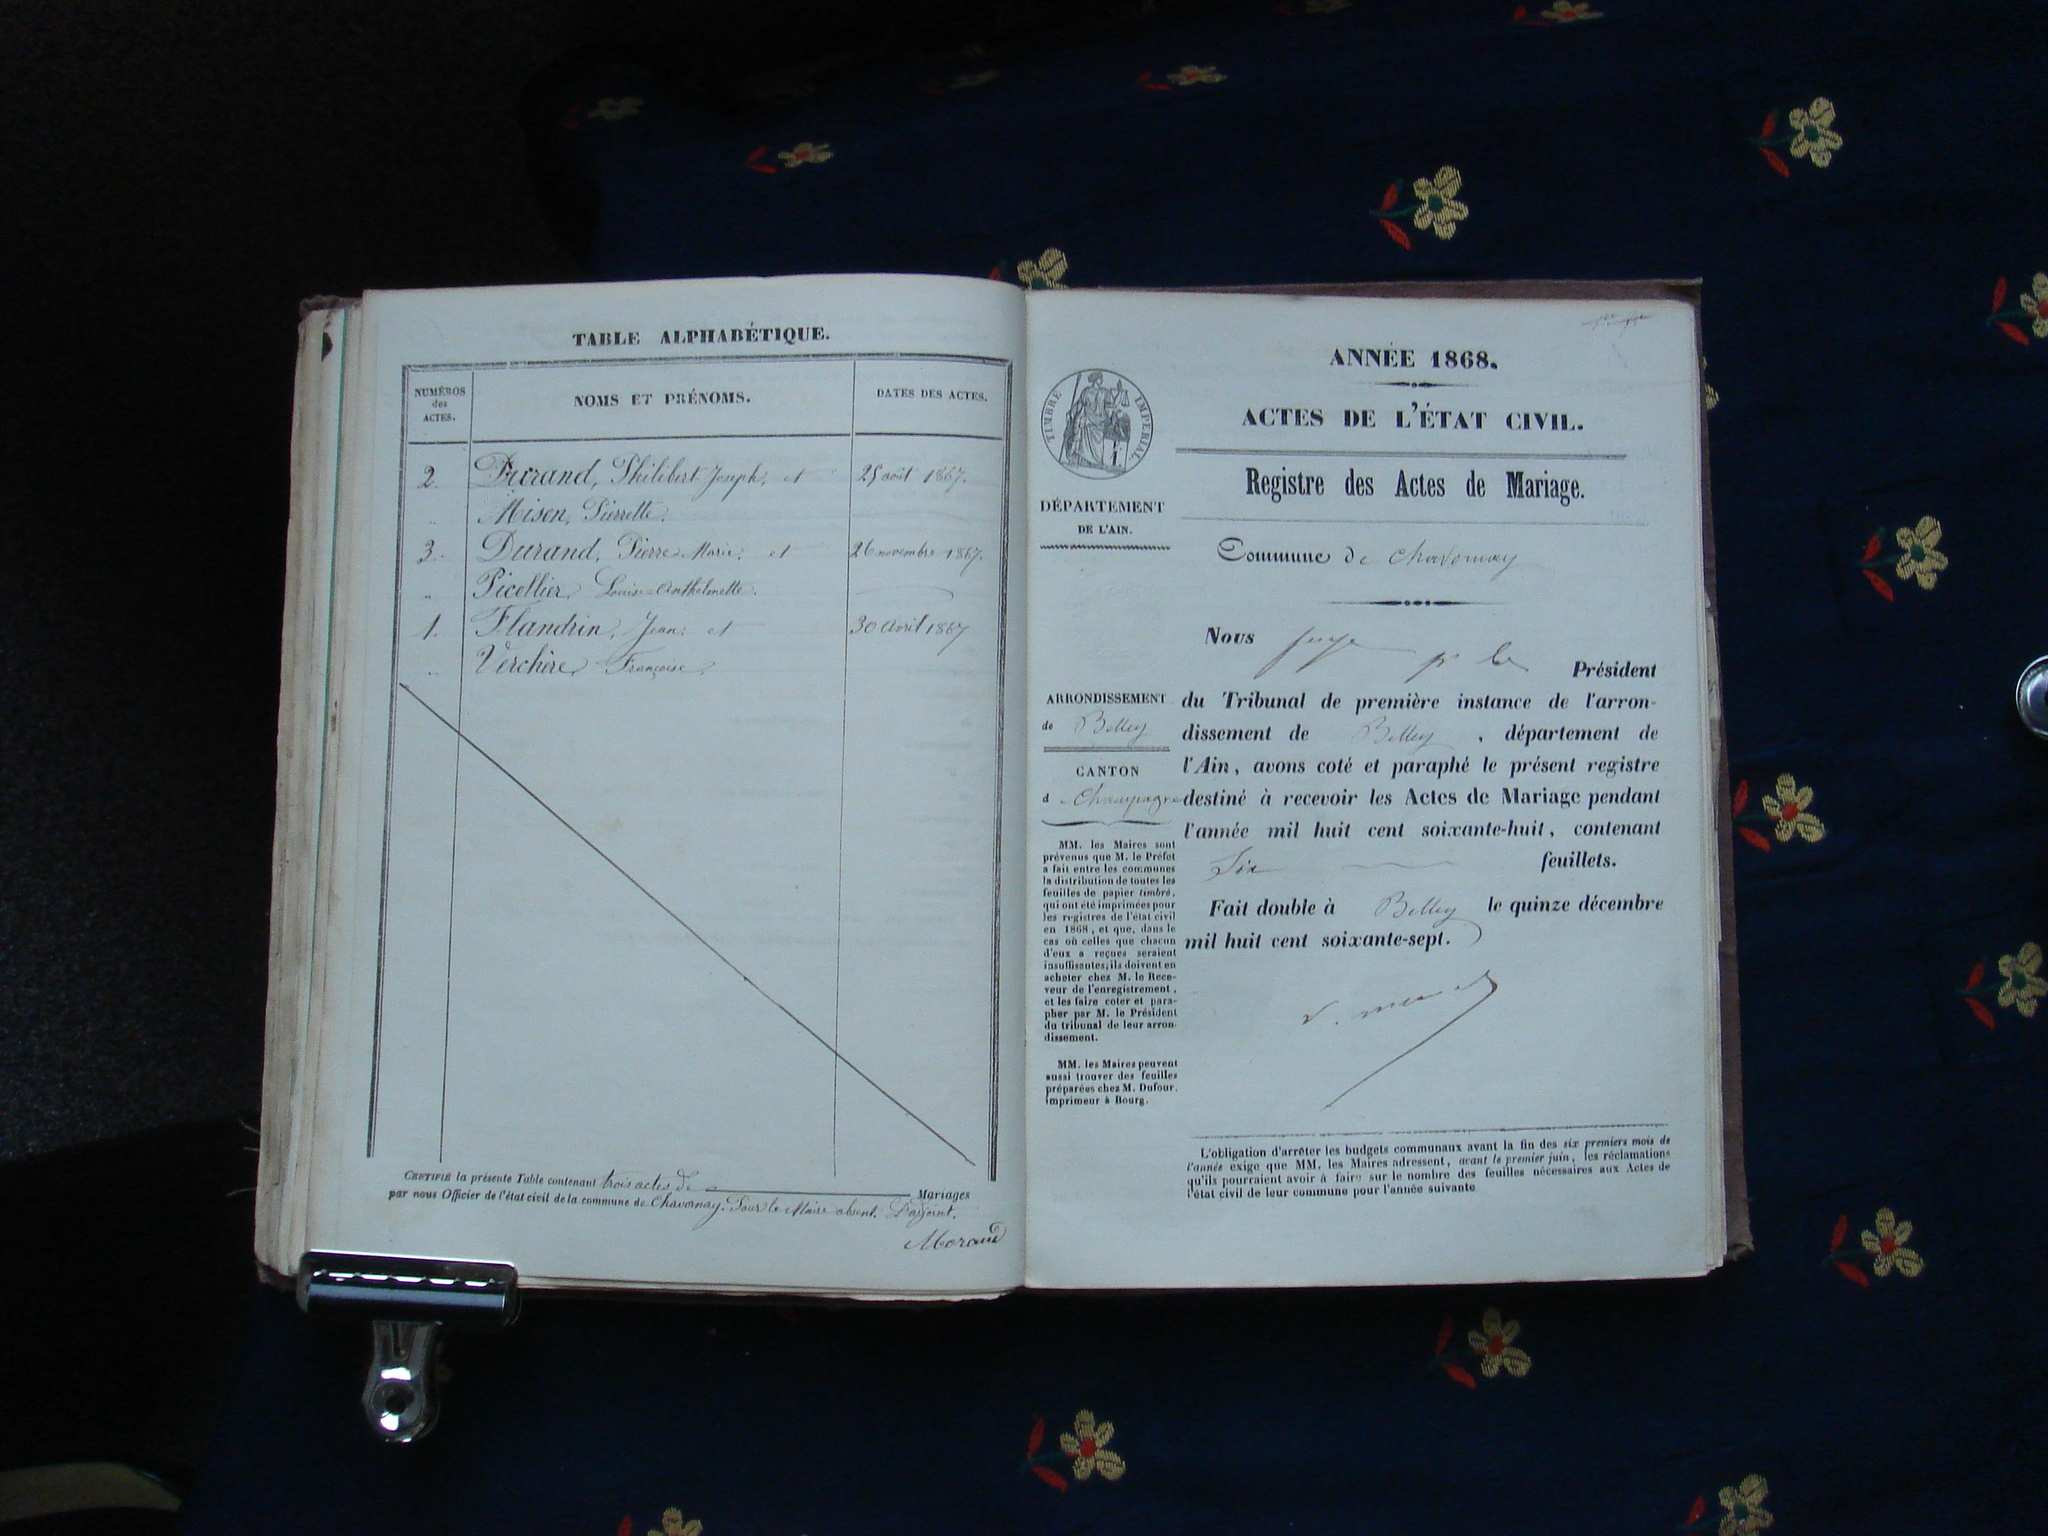 TABLE ALPHABÉTIQUE.
NUMÉROS
des
ACTES.
NOMS ET PRÉNOMS.
DATES DES ACTES.
2. Durand, Philibert Joseph, et 25 août 1867.
.. Misen, Pierrette.
3. Durand, Pierre-Marie, et 26 novembre 1867.
.. Picollier, Louise-Anthelmette.
1. Flandrin, Jean, et 30 avril 1867
.. Verchère, Françoise.
CERTIFIÉ la présente Table contenant trois actes de Mariages
par nous Officier de l'état civil de la commune de Chavornay. Pour le Maire absent. L'adjoint.
Morand
ANNÉE 1868.
ACTES DE L'ÉTAT CIVIL.
Registre des Actes de Mariage.
Commune de Chavornay
TIMBRE IMPÉRIAL
DÉPARTEMENT
DE L'AIN.
ARRONDISSEMENT
de Belley
CANTON
d Champagne
MM. les Maires sont
prévenus que M. le Préfet
a fait entre les communes
la distribution de toutes les
feuilles de papier timbré,
qui ont été imprimées pour
les registres de l'état civil
en 1868, et que, dans le
cas où celles que chacun
d'eux a reçues seraient
insuffisantes, ils doivent en
acheter chez M. le Rece-
veur de l'enregistrement,
et les faire coter et para-
pher par M. le Président
du tribunal de leur arron-
dissement.
MM. les Maires peuvent
aussi trouver des feuilles
préparées chez M. Dufour,
imprimeur à Bourg.
Nous juge pr le Président
du Tribunal de première instance de l'arron-
dissement de Belley, département de
l'Ain, avons coté et paraphé le présent registre
destiné à recevoir les Actes de Mariage pendant
l'année mil huit cent soixante-huit, contenant
Six feuillets.
Fait double à Belley le quinze décembre
mil huit cent soixante-sept.
L'obligation d'arrêter les budgets communaux avant la fin des six premiers mois de
l'année exige que MM. les Maires adressent, avant le premier juin, les réclamations
qu'ils pourraient avoir à faire sur le nombre des feuilles nécessaires aux Actes de
l'état civil de leur commune pour l'année suivante